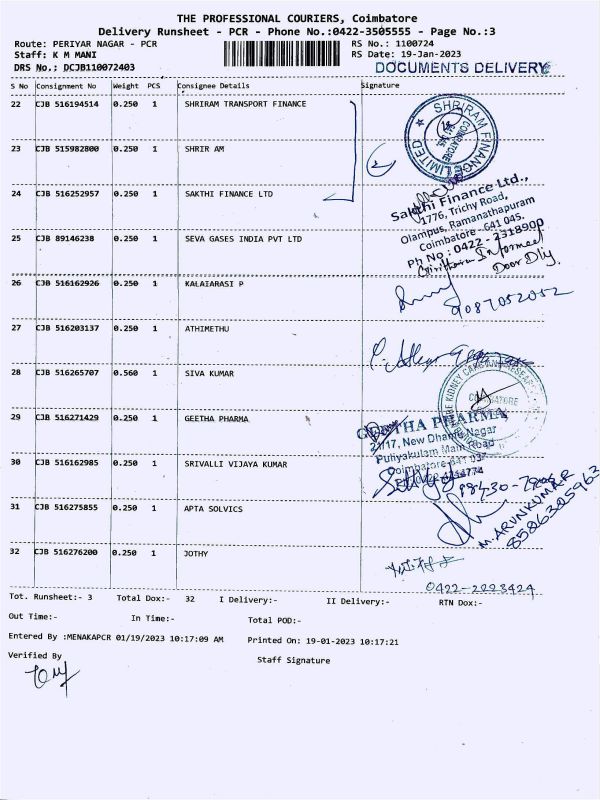 THE PROFESSIONAL COURIERS, Coimbatore
Delivery Runsheet - PCR - Phone No.:0422-3505555 - Page No.:3
Route: PERIYAR NAGAR - PCR RS No.: 1100724
Staff: K M MANI RS Date: 19-Jan-2023
DRS No.; DCJB110072403 DOCUMENTS DELIVERY
S No Consignment No Weight PCS Consignee Details Signature
22 CJB 516194514 0.250 1 SHRIRAM TRANSPORT FINANCE
SHRIRAM FINANCE LIMITED
COIMBATORE
23 CJB 515982800 0.250 1 SHRIR AM
2
24 CJB 516252957 0.250 1 SAKTHI FINANCE LTD
Sakthi Finance Ltd.,
1776, Trichy Road,
Olampus, Ramanathapuram
Coimbatore - 641 045.
Ph No : 0422 - 2318900
25 CJB 89146238 0.250 1 SEVA GASES INDIA PVT LTD
Door Dly.
26 CJB 516162926 0.250 1 KALAIARASI P
9087052052
27 CJB 516203137 0.250 1 ATHIMETHU
28 CJB 516265707 0.560 1 SIVA KUMAR
THE KIDNEY CARE AND RESEARCH
COIMBATORE
29 CJB 516271429 0.250 1 GEETHA PHARMA
GEETHA PHARMA
21/17, New Dhamu Nagar
Puliyakulam Main Road
30 CJB 516162985 0.250 1 SRIVALLI VIJAYA KUMAR
31 CJB 516275855 0.250 1 APTA SOLVICS
M. ARUNKUMAR
8586305963
32 CJB 516276200 0.250 1 JOTHY
Tot. Runsheet:- 3 Total Dox:- 32 I Delivery:- II Delivery:- RTN Dox:-
Out Time:- In Time:- Total POD:-
Entered By :MENAKAPCR 01/19/2023 10:17:09 AM Printed On: 19-01-2023 10:17:21
Verified By Staff Signature